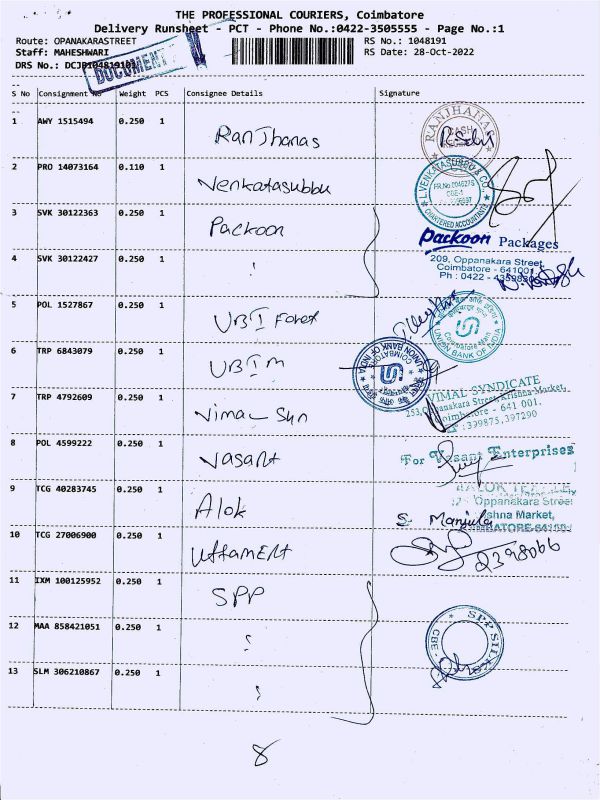 THE PROFESSIONAL COURIERS, Coimbatore
Delivery Runsheet - PCT - Phone No.:0422-3505555 - Page No.:1
Route: OPANAKARASTREET RS No.: 1048191
Staff: MAHESHWARI RS Date: 28-Oct-2022
DRS No.: DCJ
DOCUMENT
S No Consignment No Weight PCS Consignee Details Signature
1 AWY 1515494 0.250 1 Ranjhanas
RANJHANAS
CASH
2 PRO 14073164 0.110 1 Venkatasubbu
L.VENKATASUBBU & CO
FR.No.004627S
CBE-1
CHARTERED ACCOUNTANTS
3 SVK 30122363 0.250 1 Packoon
Packoon Packages
209, Oppanakara Street,
Coimbatore - 641001
Ph : 0422 -
4 SVK 30122427 0.250 1
5 POL 1527867 0.250 1 UBI
Coimbatore Main
UNION BANK OF INDIA
6 TRP 6843079 0.250 1 UBI M
COIMBATORE
UNION BANK OF INDIA
7 TRP 4792609 0.250 1 Vimal Syn
VIMAL SYNDICATE
253, Oppanakara Street, Krishna Market,
Coimbatore - 641 001.
: 399875, 397290
8 POL 4599222 0.250 1 Vasant
For Vasant Enterprises
9 TCG 40283745 0.250 1 Alok
Oppanakara Street
Market,
S. Manjula
10 TCG 27006900 0.250 1 Uttam Ent
2398066
11 IXM 100125952 0.250 1 SPP
12 MAA 858421051 0.250 1
SPP SILK
CBE
13 SLM 306210867 0.250 1
8